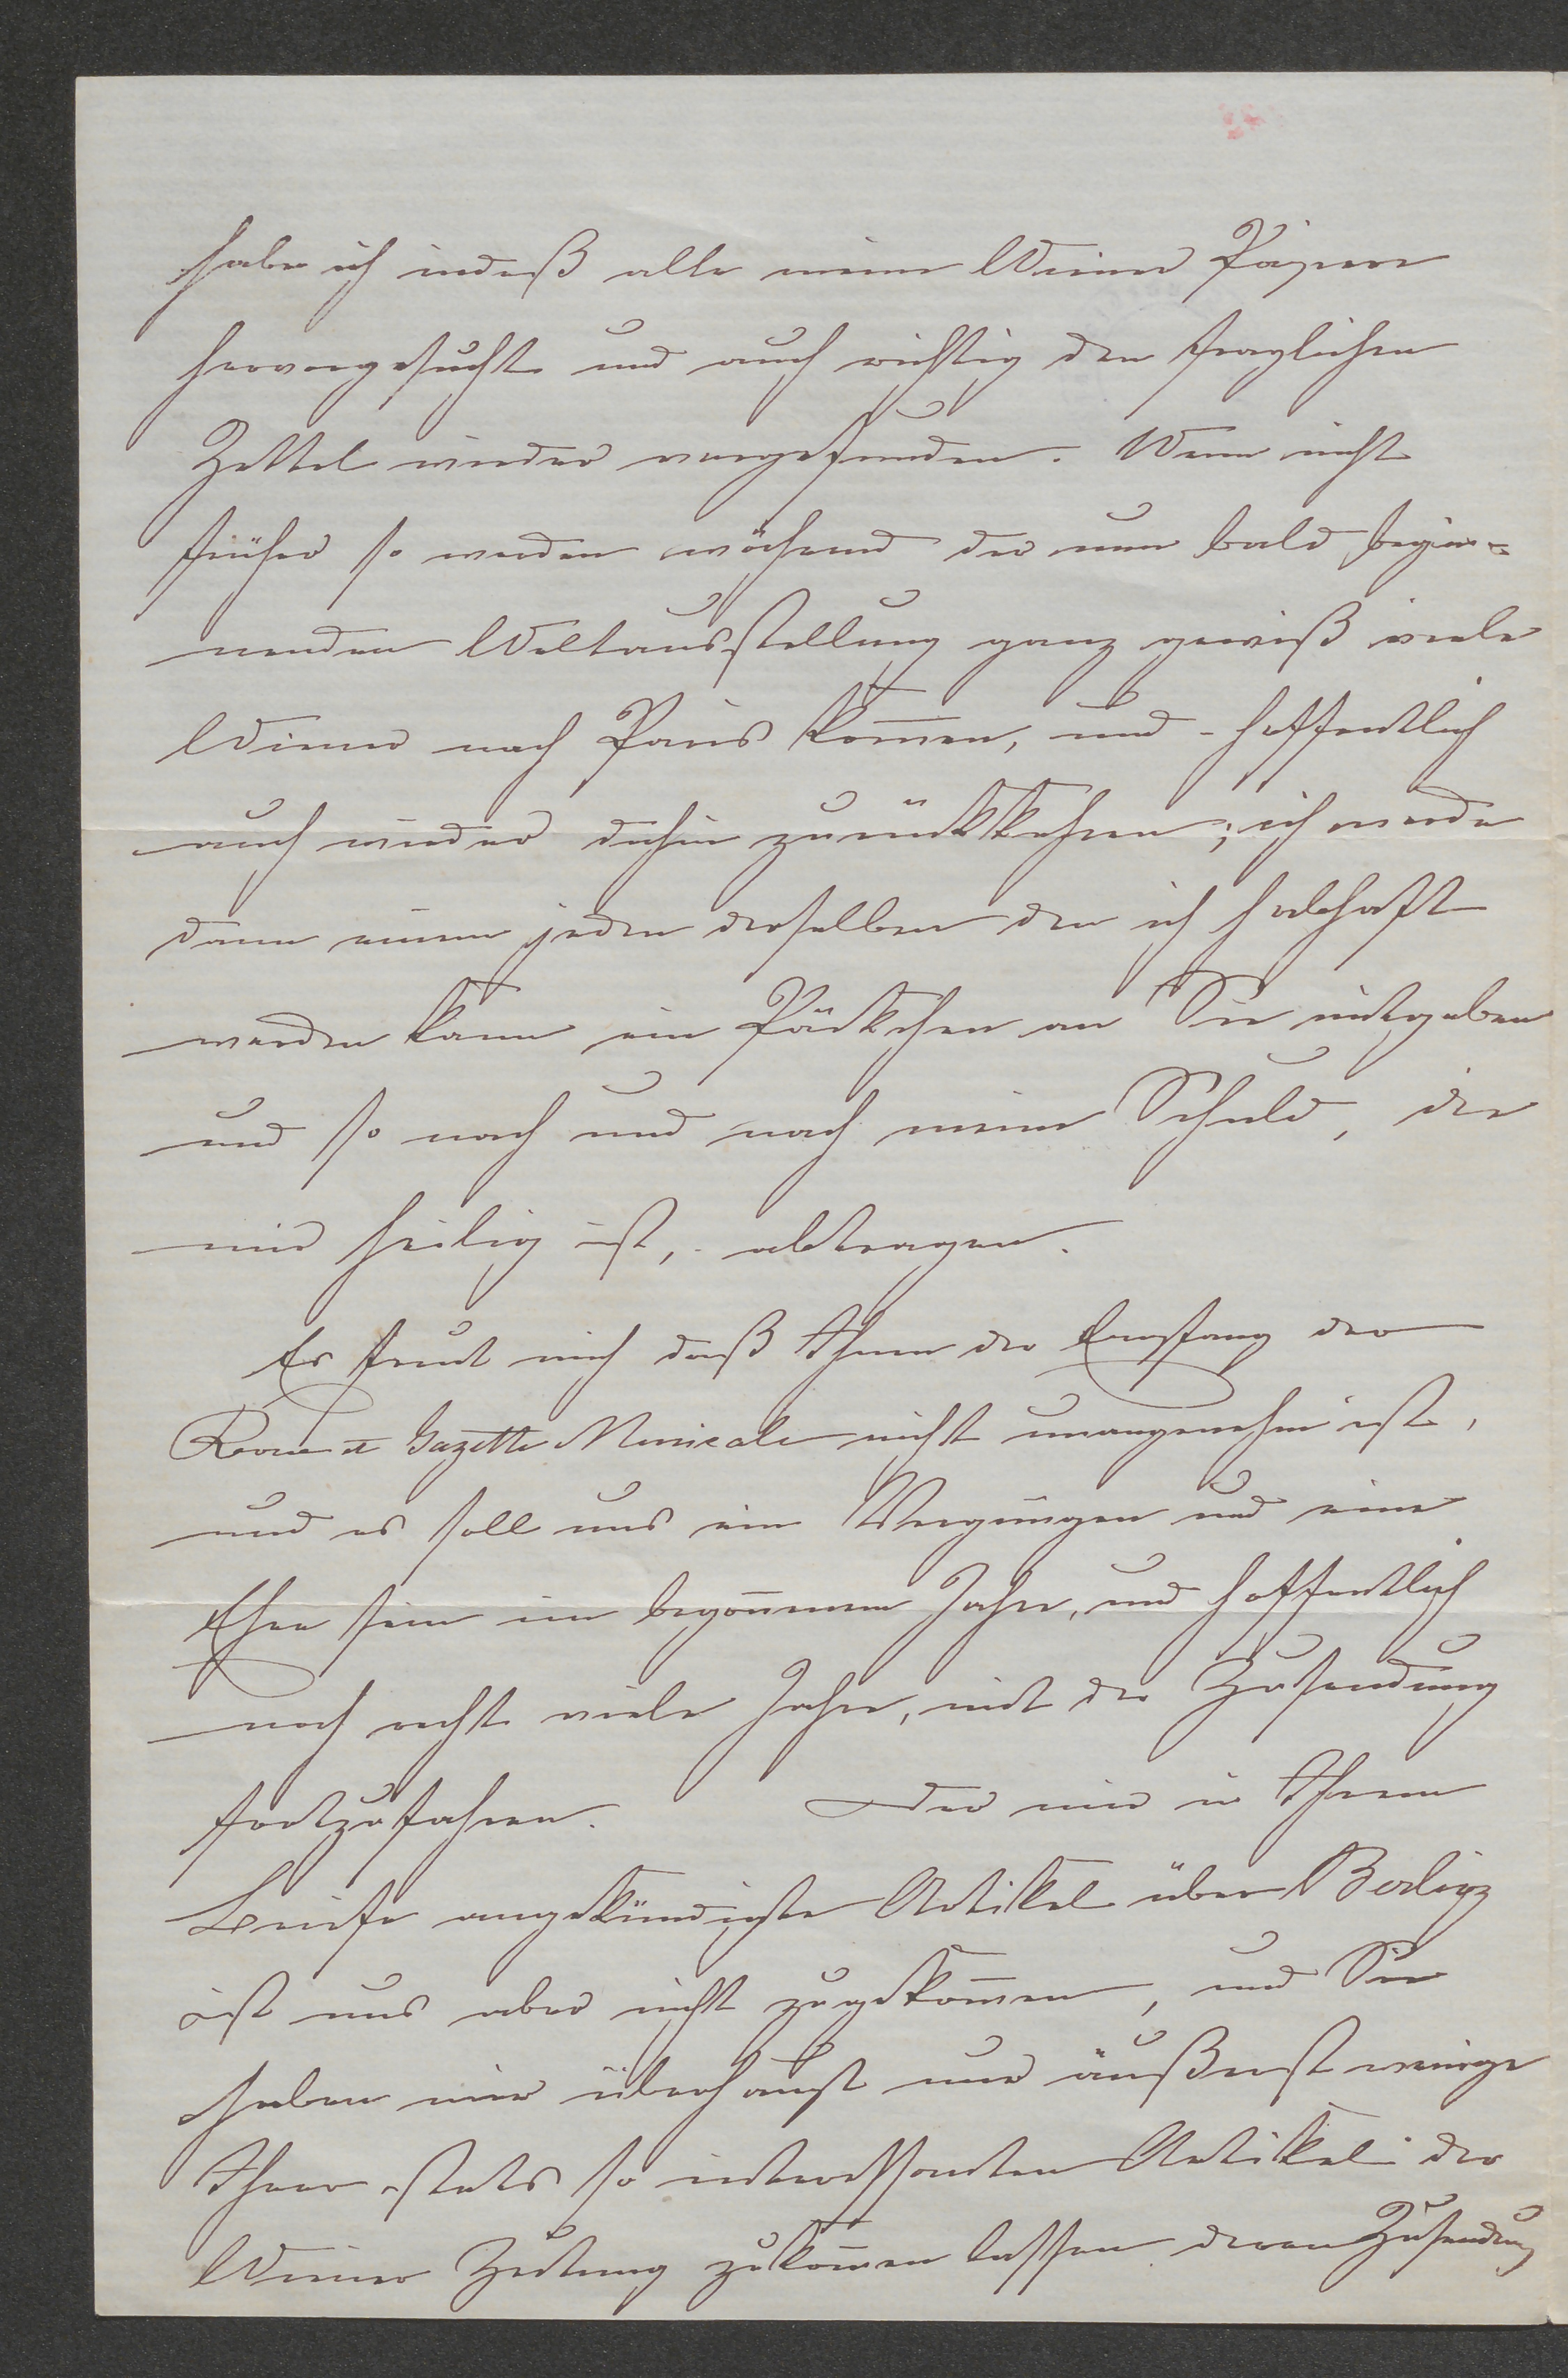 habe ich indeß alle meine Wiener Papiere
hervorgesucht und auch richtig den fraglichen
Zettel wieder vorgefunden. Wenn nicht
früher so werden während der nun bald begin-
nenden Weltausstellung ganz gewiß viele
Wiener nach Paris kom̅en, und - hoffentlich
auch wieder dahin zurückkehren; ich werde
dann einem jeden derselben den ich habhaft
werden kann ein Päckchen an Sie mitgeben
und so nach und nach meine Schuld, die
mir heilig ist, abtragen.
Es freut mich daß Ihnen der Empfang der
Revue et Gazette Musicale nicht unangenehm ist,
und es soll uns ein Vergnügen und eine
Ehre sein im begon̅enen Jahre, und hoffentlich
noch recht viele Jahre, mit der Zusendung
fortzufahren. Der mir in Ihrem
Briefe angekündigte Artikel über Berlioz
ist uns aber nicht zugekom̅en, und Sie
haben mir überhaupt nur äußerst wenige
Ihrer stets so interessanten Artikel der
Wiener Zeitung zukom̅en lassen deren Zusendung